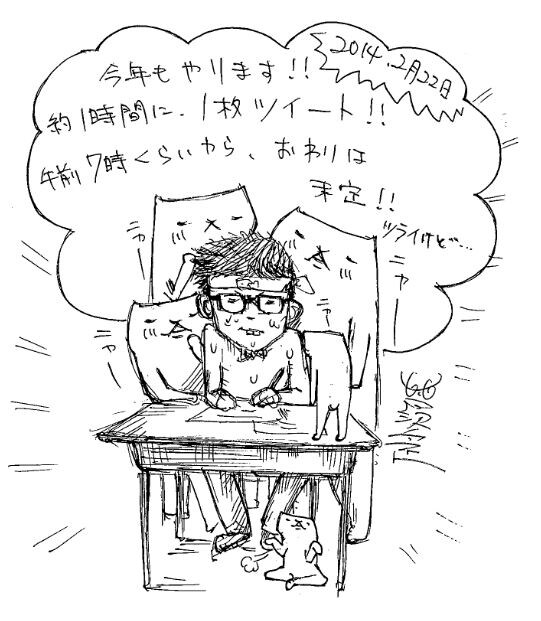 2014.2月22日
今年もやります!!
約1時間に、1枚ツイート!!
午前7時くらいから、おわりは
未定!!
ツライけど…
ニャー
ニャー
ニャー
ニャー